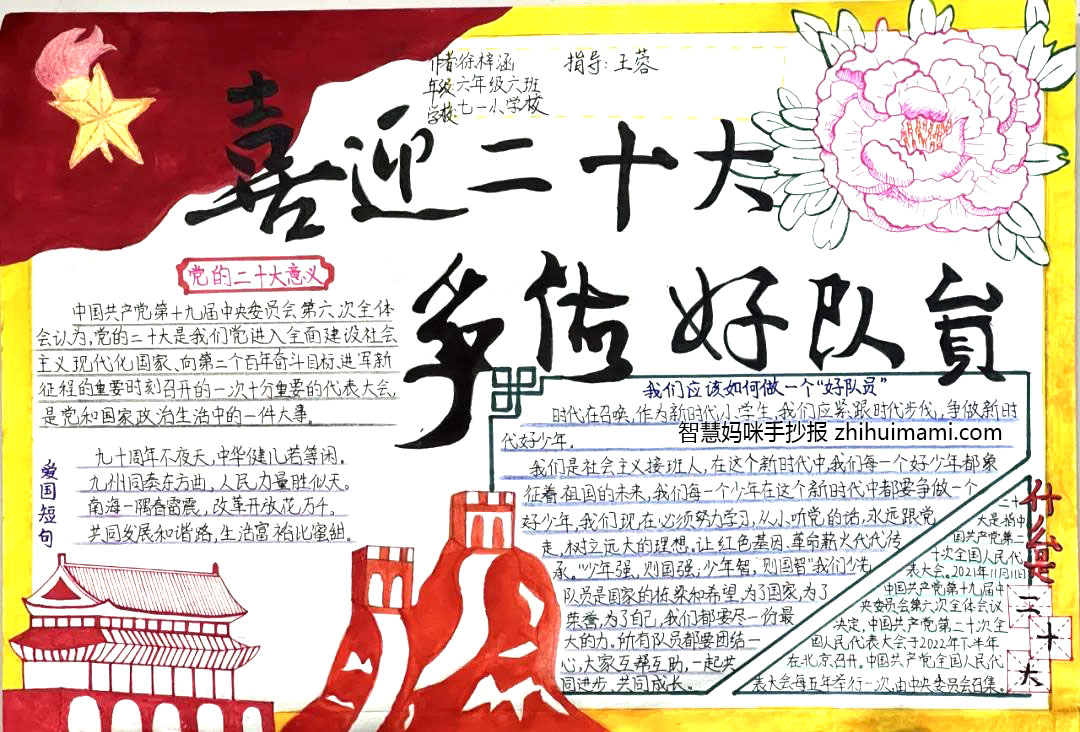 作者:徐梓涵
指导:王蓉
年级:六年级六班
学校:七一小学校
喜迎二十大
争做好队员
党的二十大意义
中国共产党第十九届中央委员会第六次全体
会认为,党的二十大是我们党进入全面建设社会
主义现代化国家、向第二个百年奋斗目标进军新
征程的重要时刻召开的一次十分重要的代表大会,
是党和国家政治生活中的一件大事。
爱国短句
九十周年不夜天,中华健儿若等闲。
九州同奏东方曲,人民力量胜似天。
南海一隅春雷震,改革开放花万千。
共同发展和谐路,生活富裕比蜜甜。
我们应该如何做一个“好队员”
时代在召唤,作为新时代小学生,我们应紧跟时代步伐,争做新时
代好少年。
智慧妈咪手抄报 zhihuimami.com
我们是社会主义接班人,在这个新时代中,我们每一个好少年都象
征着祖国的未来,我们每一个少年在这个新时代中都要争做一个
好少年,我们现在必须努力学习,从小听党的话,永远跟党
走,树立远大的理想。让红色基因、革命薪火代代传
承。“少年强,则国强,少年智,则国智”我们少先
队员是国家的栋梁和希望,为了国家,为了
荣誉,为了自己,我们都要尽一份最
大的力。所有队员都要团结一
心,大家互帮互助,一起共
同进步、共同成长。
什么是二十大
二十
大是指中
国共产党第二
十次全国人民代
表大会。2021年11月11日
中国共产党第十九届中
央委员会第六次全体会议
决定,中国共产党第二十次全
国人民代表大会于2022年下半年
在北京召开。中国共产党全国人民代
表大会每五年举行一次,由中央委员会召集。